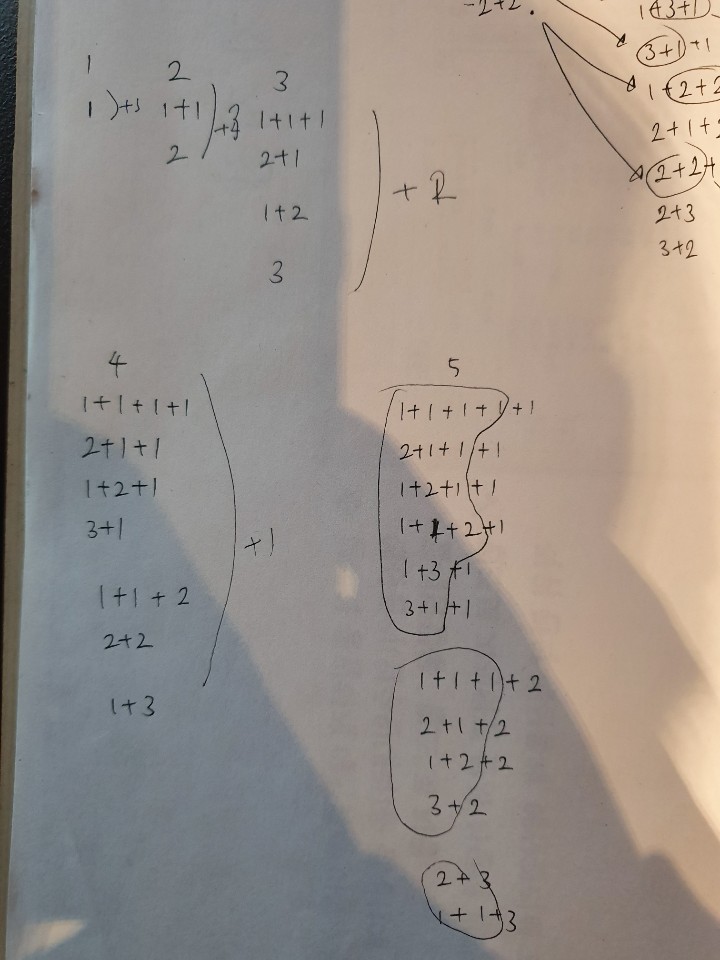 -2+2.
1+3+1
3+1+1
1+2+2
2+1+2
2+2+
2+3
3+2
1
1 )+3
2
1+1
2
3
1+1+1
2+1
1+2
3
+ 2
4
1+1+1+1
2+1+1
1+2+1
3+1
1+1+2
2+2
1+3
+1
5
1+1+1+1+1
2+1+1+1
1+2+1+1
1+1+2+1
1+3+1
3+1+1
1+1+1+2
2+1+2
1+2+2
3+2
2+3
1+1+3